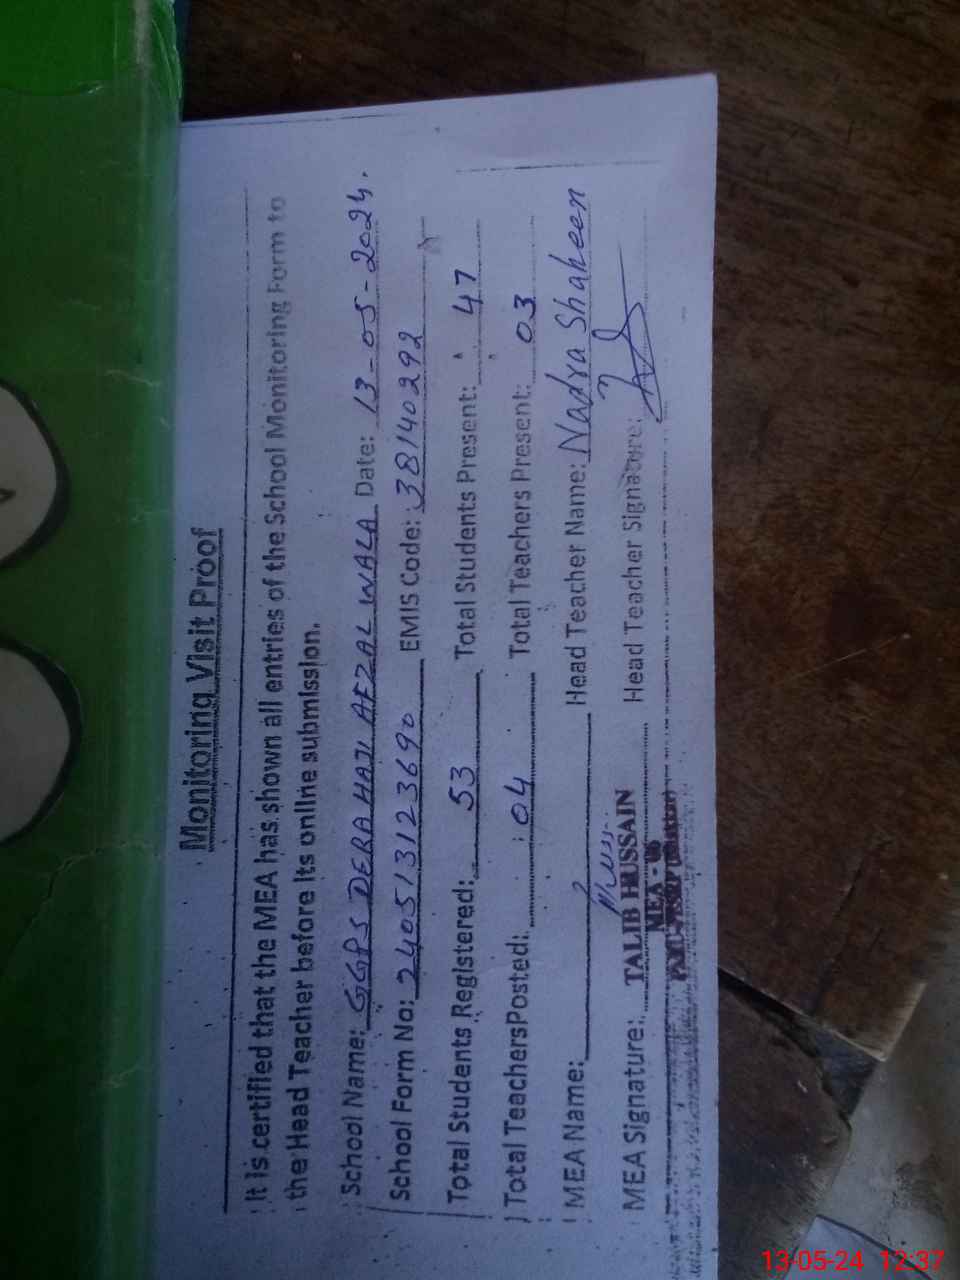 Monitoring Visit Proof
It is certified that the MEA has shown all entries of the School Monitoring Form to
the Head Teacher before its online submission.
School Name: GGPS DERA HAJI AFZAL WALA Date: 13-05-2024.
School Form No: 240513123690 EMIS Code: 38140292
Total Students Registered: 53 Total Students Present: 47
Total Teachers Posted: 04 Total Teachers Present: 03
MEA Name: Head Teacher Name: Nadra Shaheen
MEA Signature: TALIB HUSSAIN Head Teacher Signature:
MEA -
13-05-24 12:37